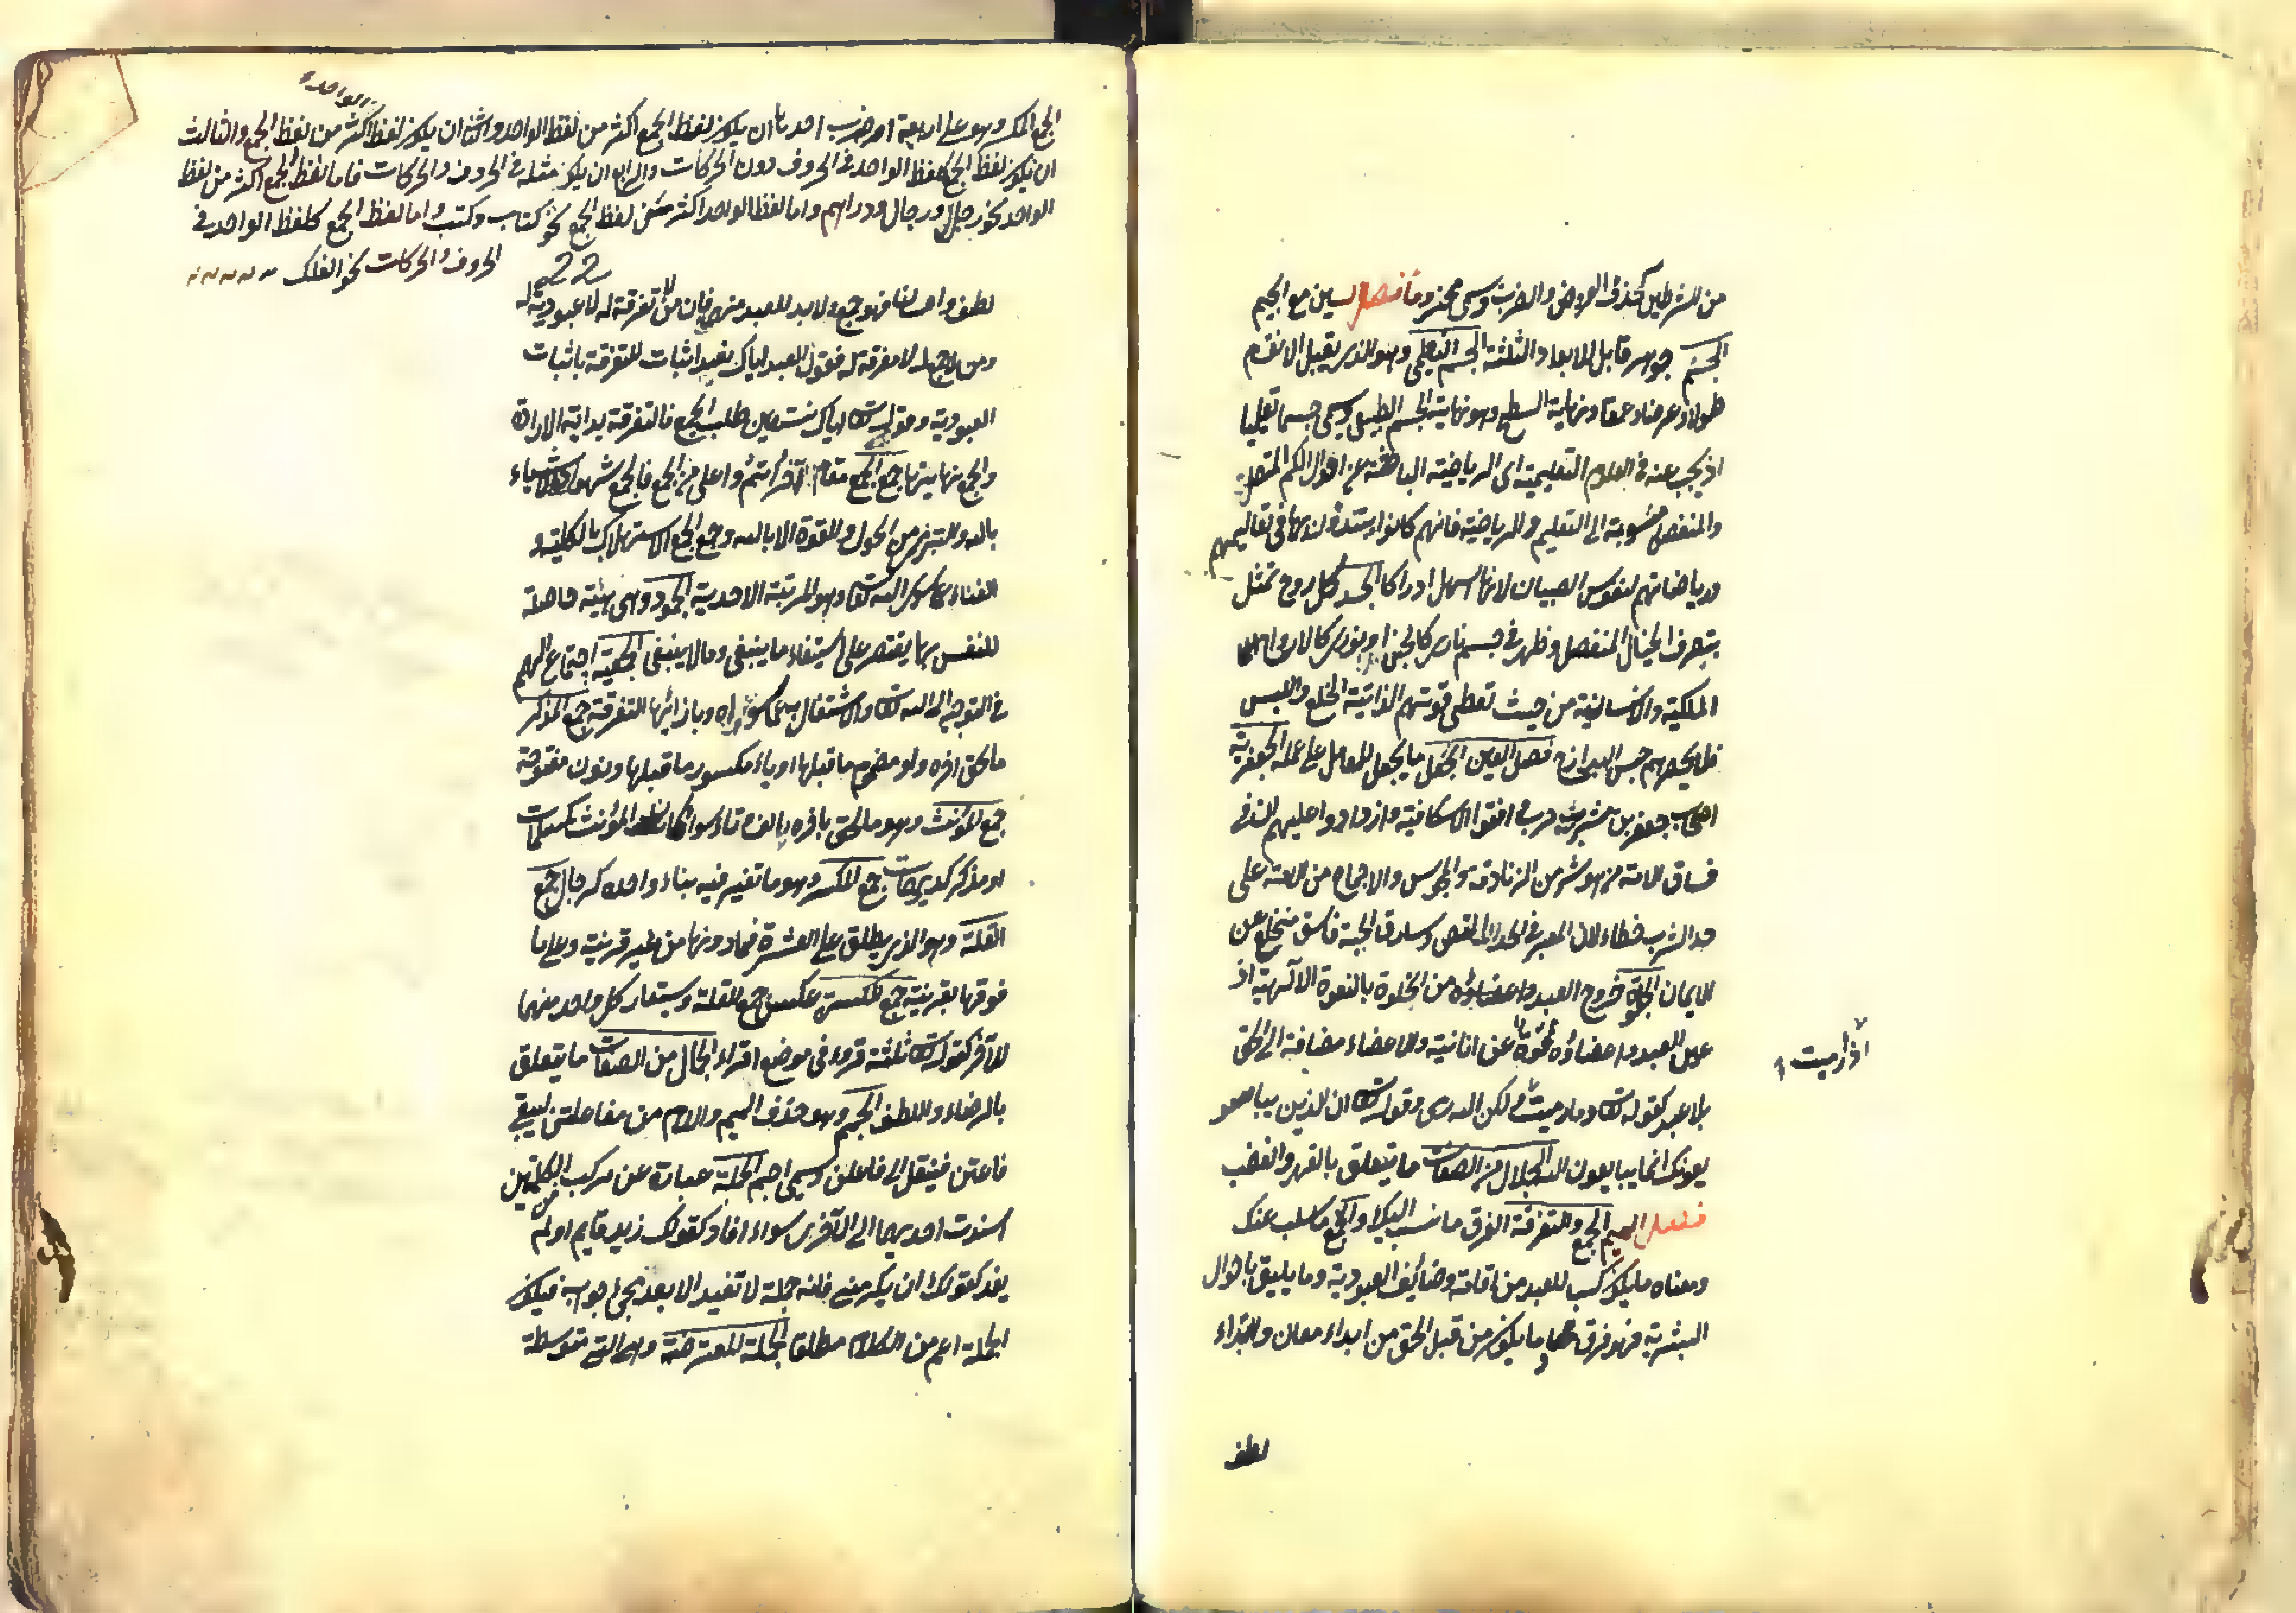 من الشطرين كحذف العروض والضرب ويسمى مجزوما فصل السين مع الجيم
الجسم جوهر قابل للابعاد الثلثة الجسم التعليمى وهو الذى يقبل الانقسام
طولا وعرضا وعمقا ونهايته السطح وهو نهاية الجسم الطبيعى ويسمى جسما تعليميا
اذ يبحث عنه فى العلوم التعليمية اى الرياضية الباحثة عن احوال الكم المتصل
والمنفصل منسوبة الى التعليم والرياضية فانهم كانوا يبتدؤن بها فى تعاليمهم
ورياضاتهم لنفوس الصبيان لانها اسهل ادراكا الجسد كل روح تمثل
بتصرف الخيال المنفصل وظهر فى جسم نارى كالجن او نورى كالارواح
الملكية والانسانية من حيث تعطى قوتهم الذاتية الخلع واللبس
فلا يحصرهم حبس البرازخ فصل العين الجعل ما يجعل للعامل على عمله الجعفرية
اصحاب جعفر بن مبشر بن حرب وافقوا الاسكافية وازدادوا عليهم ان فى
فساق الامة من هو شر من الزنادقة والمجوس والاجماع من الامة على
حد الشرب خطاء لان المعتبر فى الحد النص وسارق الحبة فاسق منخلع عن
الايمان الجلوة خروج العبد من الخلوة بالنعوت الالهية اذ
عين العبد واعضاؤه ممحوة عن انانيته والاعضاء مضافة الى الحق
بلا عبد كقوله تعالى وما رميت ولكن الله رمى وقوله تعالى ان الذين يبا
يعونك انما يبايعون الله الجلال من الصفات ما يتعلق بالقهر والغضب
فصل الميم الجمع والتفرقة الفرق ما نسب اليك والجمع ما سلب عنك
ومعناه ما يكون كسبا للعبد من اقامة وضائف العبودية وما يليق باحوال
البشرية فهو فرق وما يكون من قبل الحق من ابداء معان وابتداء
لطف
اذ رميت
الواحد
الجمع المكسر وهو على اربعة اضرب احدها ان يكون لفظ الجمع اكثر من لفظ الواحد والثانى ان يكون لفظ اكثر من لفظ الجمع والثالث
ان يكون لفظ الجمع كلفظ الواحد فى الحروف دون الحركات والرابع ان يكون مثله فى الحروف والحركات فاما لفظ الجمع اكثر من لفظ
الواحد نحو رجل ورجال ودراهم واما لفظ الواحد اكثر من لفظ الجمع نحو كتاب وكتب واما لفظ الجمع كلفظ الواحد فى
الحروف والحركات نحو الفلك
22
لطف واحسان فهو جمع ولا بد للعبد منهما فان من لا تفرقة له لا عبودية له
ومن لا جمع له لا معرفة له فقول العبد اياك نعبد اثبات للتفرقة باثبات
العبودية وقوله تعالى اياك نستعين طلب الجمع فالتفرقة بداية الارادة
والجمع نهايتها جمع الجمع مقام آخر اتم واعلى من الجمع فالجمع شهود الاشياء
بالله والتبرى من الحول والقوة الا بالله وجمع الجمع الاستهلاك بالكلية و
الفناء عما سوى الله تعالى وهو المرتبة الاحدية الجمود وهى هيئة حاصلة
للنفس بها يقتصر على استيفاء ما ينبغى وما لا ينبغى الجمعية اجتماع الهم
فى التوجه الى الله تعالى والاشتغال به عما سواه وبازائها التفرقة جمع المذكر
ما لحق آخره واو مضموم ما قبلها او ياء مكسور ما قبلها ونون مفتوحة
جمع المؤنث وهو ما لحق بآخره الف وتاء سواء كان المؤنث كمسلمات
او مذكر كدريهمات جمع المكسر وهو ما تغير فيه بناء واحده كرجال جمع
القلة وهو الذى يطلق على العشرة فما دونها من غير قرينة وعلى ما
فوقها بقرينة جمع الكثرة عكس جمع القلة ويستعار كل واحد منهما
للآخر كقوله تعالى ثلثة قروء فى موضع اقراء الجمال من الصفات ما يتعلق
بالرضاء واللطف الجمم وهو حذف الميم واللام من مفاعلتن ليبقى
فاعتن فينقل الى فاعلن ويسمى اجم الجملة عبارة عن مركب من الكلمتين
اسندت احديهما الى الآخرى سواء افاد كقولك زيد قايم او لم
يفد كقولك ان يكرمنى فانه جملة لا تفيد الا بعد مجئ جوابه فيكون
الجملة اعم من الكلام مطلقا الجملة المعترضة وهى التى تتوسطة